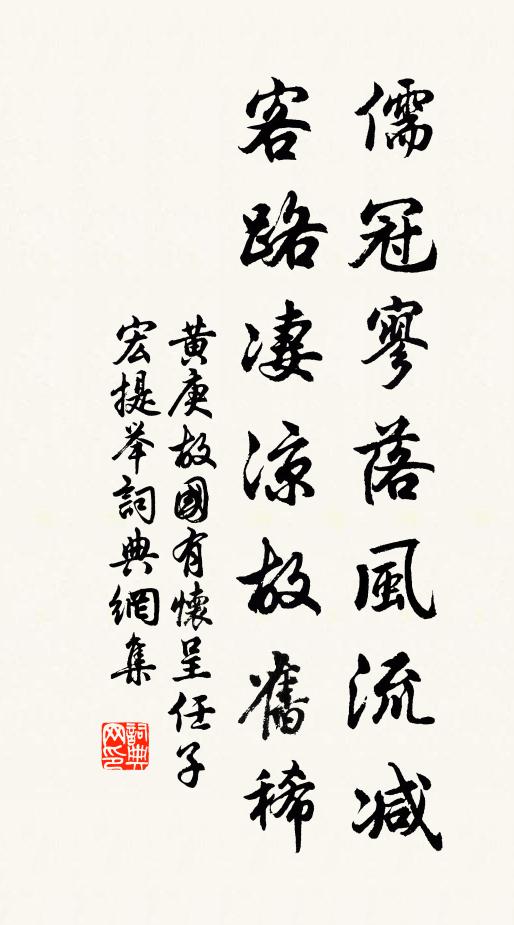 儒冠寥落風流减
客路凄涼故舊稀
黄庚故國有懷呈任子
宏提举詞典網集
詞典网印